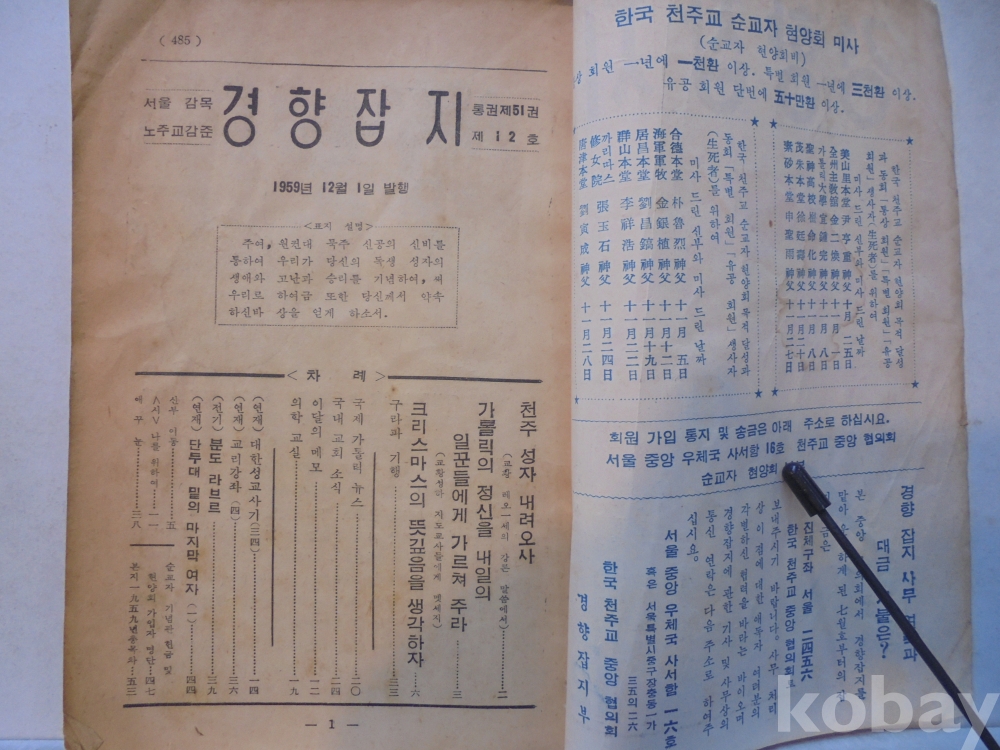 ( 485 )
서울 감목
노주교감준
경향잡지
통권제51권
제12호
1959년 12월 1일 발행
<표지 설명>
주여, 원컨대 묵주 신공의 신비를
통하여 우리가 당신의 독생 성자의
생애와 고난과 승리를 기념하여, 써
우리로 하여금 또한 당신께서 약속
하신바 상을 얻게 하소서.
<차 례>
천주 성자 내려오사
(교황 레오一세의 강론 말씀에서)……二
가톨릭의 정신을 내일의
일꾼들에게 가르쳐 주라……三
(교황성하 지도교사들에게 멧세지)
크리스마스의 뜻깊음을 생각하자…六
구라파 기행……三三
국제 가톨릭 뉴스……二〇
국내 교회 소식……二四
이달의 메모……一二
의학 교실……一九
(연재) 대한성교사기(三四)……一四
(연재) 교리강좌(四)……三六
(전기) 분도 라브르……三九
(연재) 단두대 밑의 마지막 여자(一)……四四
산부 이동……五
A시V 나를 위하여……一一
애꾸눈……三八
순교자 기념관 헌금 및
현양회 가입자 명단…四七
본지一九五九년총목차…五三
— 1 —
한국 천주교 순교자 현양회 미사
(순교자 현양회비)
상 회원 一년에 一천환 이상. 특별 회원 一년에 三천환 이상.
유공 회원 단번에 五十만환 이상.
한국 천주교 순교자 현양회 목적 달성
과 동회 「통상 회원」「특별 회원」「유공
회원」 생사자(生死者)를 위하여
미사 드린 신부와 미사 드린 날짜
美山里本堂 尹亨重神父 十月 二五日
全州主敎館 金二煥神父 十一月 一日
가톨릭大學 堂鍾完神父 十一月 八日
聖神高校 命化神父 十一月 八日
茂朱本堂 徐廷壽神父 十一月二十日
素砂本堂 申聖雨神父 十一月二七日
한국 천주교 순교자 현양회 목적 달성과
동회 「특별 회원」「유공 회원」 생사자
(生死者)를 위하여
미사 드린 신부와 미사 드린 날짜
合德本堂 朴魯烈神父 十一月 五日
海軍軍牧 金銀植神父 十一月十二日
居昌本堂 劉昌鎬神父 十一月十九日
群山本堂 李祥浩神父 十一月二二日
까리따스修女院 張玉石神父 十一月二四日
唐津本堂 劉寅成神父 十一月二八日
회원 가입 통지 및 송금은 아래 주소로 하십시요.
서울 중앙 우체국 사서함 16호 천주교 중앙 협의회
순교자 현양회
경향 잡지 사무
대금 불은?
본 중앙 의회에서 경향잡지를
맡아 하게 된 七월호부터의
금은
진체구좌 서울 二四五六
한국 천주교 중앙 협의회
보내주시기 바랍니다. 사무 처리
상 이 점에 대한 애독자 여러분의
각별하신 협력을 바라는 바이오며
경향잡지에 관한 기사 및 사무상의
통신 연락은 다음 주소로 하여주
십시요.
서울 중앙 우체국 사서함 一六호
혹은 서울특별시중구장충동一가
三五의二六
한국 천주교 중앙 협의회
경향잡지부
kobay